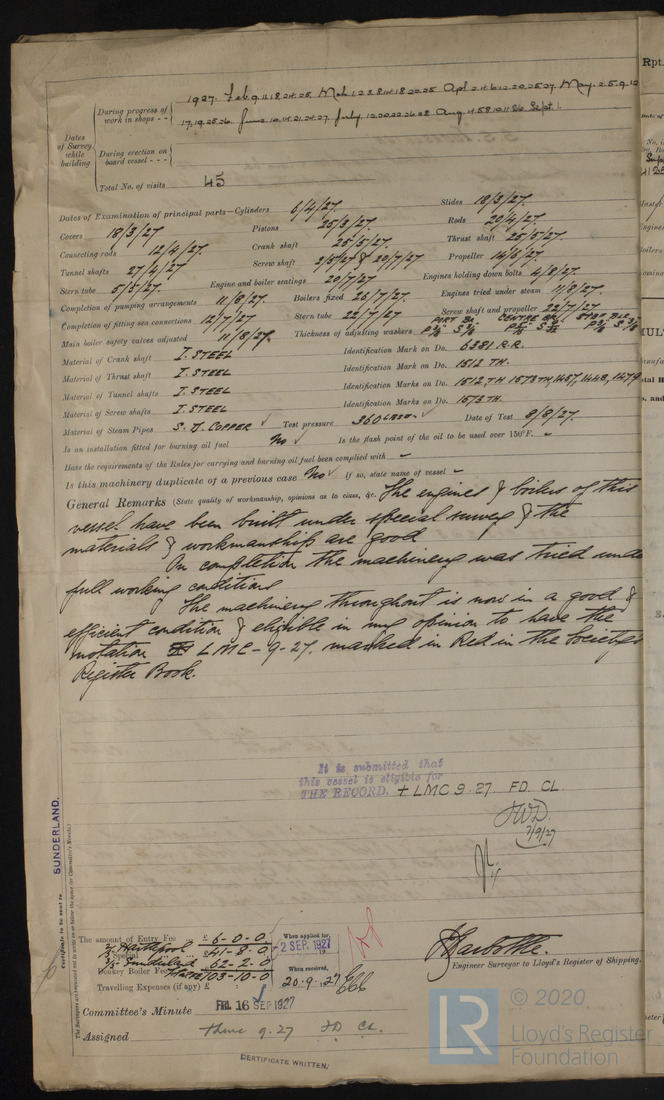 Rpt.
1927. Feb. 9. 11. 18. 24. 25. Mch. 1. 2. 8. 14. 18. 22. 25. Apl. 2. 4. 6. 12. 20. 25. 27. May. 2. 5. 9. 12
During progress of work in shops - -
17. 19. 25. 26. June 10. 14. 21. 24. 27. July 12. 20. 22. 26. 28. Aug. 4. 5. 8. 10. 11. 26. Sept. 1.
Dates of Survey while building
During erection on board vessel - - -
Total No. of visits 45
Dates of Examination of principal parts—Cylinders 6/4/27 Slides 18/3/27.
Covers 18/3/27 Pistons 25/3/27. Rods 20/4/27.
Connecting rods 12/4/27. Crank shaft 25/5/27. Thrust shaft 25/5/27.
Tunnel shafts 27/4/27 Screw shaft 2/5/27 & 20/7/27 Propeller 14/6/27.
Stern tube 5/5/27. Engine and boiler seatings 20/7/27 Engines holding down bolts 4/8/27.
Completion of pumping arrangements 11/8/27. Boilers fixed 26/7/27. Engines tried under steam 11/8/27.
Completion of fitting sea connections 12/7/27 Stern tube 22/7/27 Screw shaft and propeller 22/7/27
Main boiler safety valves adjusted 11/8/27. Thickness of adjusting washers PORT BR CENTRE BLR STBD BLR
Material of Crank shaft I. STEEL Identification Mark on Do. 6381 R.R.
Material of Thrust shaft I. STEEL Identification Mark on Do. 1512 TH.
Material of Tunnel shafts I. STEEL Identification Marks on Do. 1512 TH 1573 TH, 1457, 1448, 1479
Material of Screw shafts I. STEEL Identification Marks on Do. 1573 TH.
Material of Steam Pipes S. D. COPPER ✓ Test pressure 360 LBS ✓ Date of Test 9/8/27.
Is an installation fitted for burning oil fuel No ✓ Is the flash point of the oil to be used over 150°F. –
Have the requirements of the Rules for carrying and burning oil fuel been complied with –
Is this machinery duplicate of a previous case No ✓ If so, state name of vessel –
General Remarks (State quality of workmanship, opinions as to class, &c. The engines & boilers of this
vessel have been built under special survey & the
materials & workmanship are good
On completion the machinery was tried unde
full working conditions
The machinery throughout is now in a good &
efficient condition & eligible in my opinion to have the
notation LMC - 9-27. marked in Red in the Societys
Register Book.
It is submitted that
this vessel is eligible for
THE RECORD. + LMC 9. 27 FD CL.
7/9/27
SUNDERLAND.
Certificate to be sent to
The amount of Entry Fee ... £ 6-0-0 When applied for,
Hartlepool Special £ 41-8-0 2 SEP. 1927
Sunderland 62-2-0
Donkey Boiler Fee £ 103-10-0 When received,
Travelling Expenses (if any) £ 20.9.27
Engineer Surveyor to Lloyd's Register of Shipping.
Committee's Minute FRI. 16 SEP 1927
Assigned + Lmc 9.27 FD CL.
CERTIFICATE WRITTEN.
LR © 2020
Lloyd's Register
Foundation